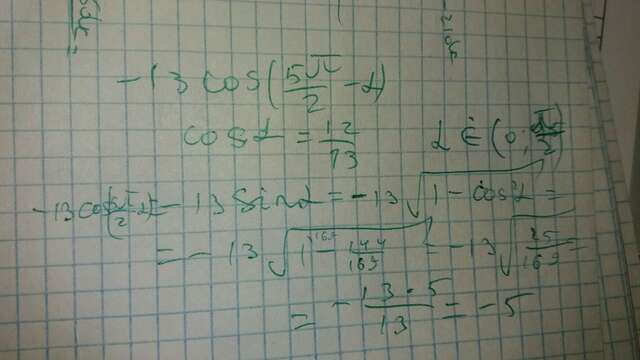 -13 cos(5π/2 - α)
cos α = 12/13 α ∈ (0, π/2)
-13 cos(5π/2 - α) = -13 sin α = -13 √(1 - cos²α) =
= -13 √(1 - 144/169) = -13 √(25/169) =
= - 13 · 5/13 = -5